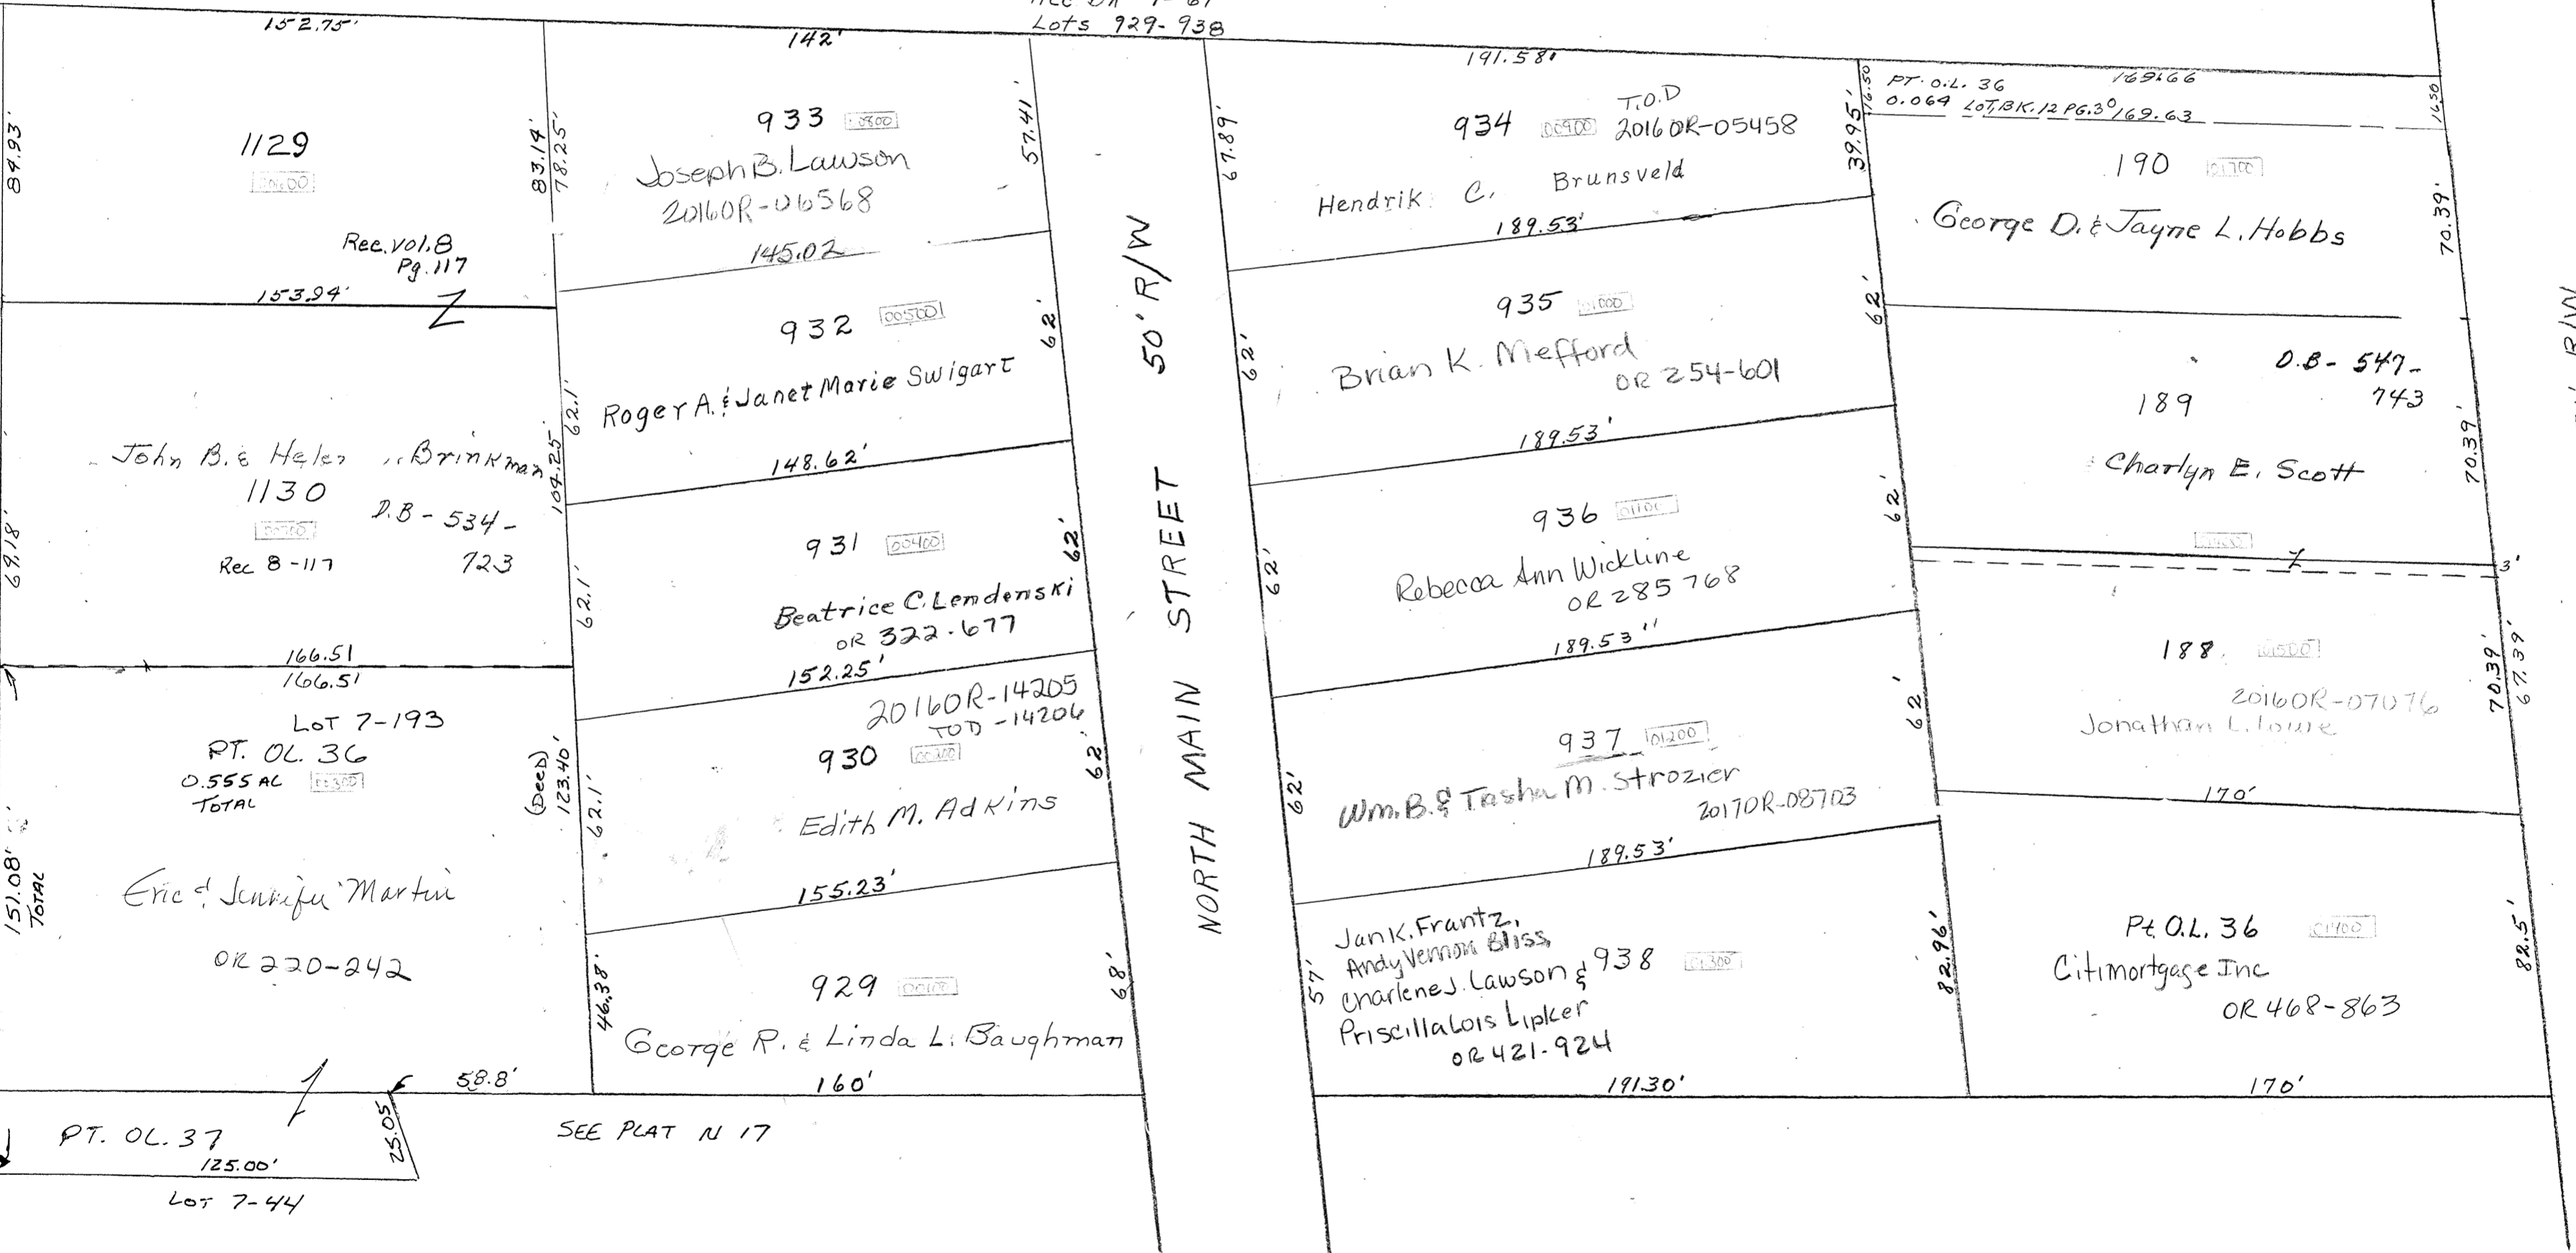 Lots 929-938
152.75'
84.93'
1129
83.14'
78.25'
Rec. vol. 8
Pg. 117
153.94'
John B. &
Brinkman
1130
D.B - 534 -
723
Rec 8-117
104.25'
69.18'
166.51
166.51
LOT 7-193
PT. OL. 36
0.555 AC
TOTAL
(Deed)
123.40'
151.08'
TOTAL
Eric & Jennifer Martin
OR 220-242
58.8'
PT. OL. 37
25.05
125.00'
LOT 7-44
SEE PLAT N 17
142'
933
Joseph B. Lawson
2016OR-06568
57.41'
145.02
932
00500
Roger A. & Janet Marie Swigart
62'
62.1'
148.62'
931
00400
Beatrice C. Lendenski
OR 322-677
62'
62.1'
152.25'
2016OR-14205
TOD -14206
930
Edith M. Adkins
62'
62.1'
155.23'
929
00100
George R. & Linda L. Baughman
68'
46.38'
160'
NORTH MAIN STREET 50' R/W
191.58'
67.89'
934
00900
T.O.D
2016OR-05458
Hendrik C. Brunsveld
39.95'
189.53'
935
01000
Brian K. Mefford
OR 254-601
62'
62'
189.53'
936
01100
Rebecca Ann Wickline
OR 285 768
62'
62'
189.53"
937
01200
Wm. B. & Tasha M. Strozier
2017OR-08703
62'
62'
189.53'
Jan K. Frantz,
Andy Vernon Bliss,
Charlene J. Lawson &
Priscilla Lois Lipker
OR 421-924
938
01300
57'
82.96'
191.30'
16.50
PT. O.L. 36
169.66
0.064 LOT, BK. 12 PG. 30
169.63
16.50
190
01700
George D. & Jayne L. Hobbs
70.39'
D.B - 547 -
743
189
Charlyn E. Scott
70.39'
3'
188
01500
2016OR-07076
Jonathan L.
70.39'
67.39'
170'
Pt O.L. 36
01400
Citimortgage Inc
OR 468-863
82.5'
170'
R/W